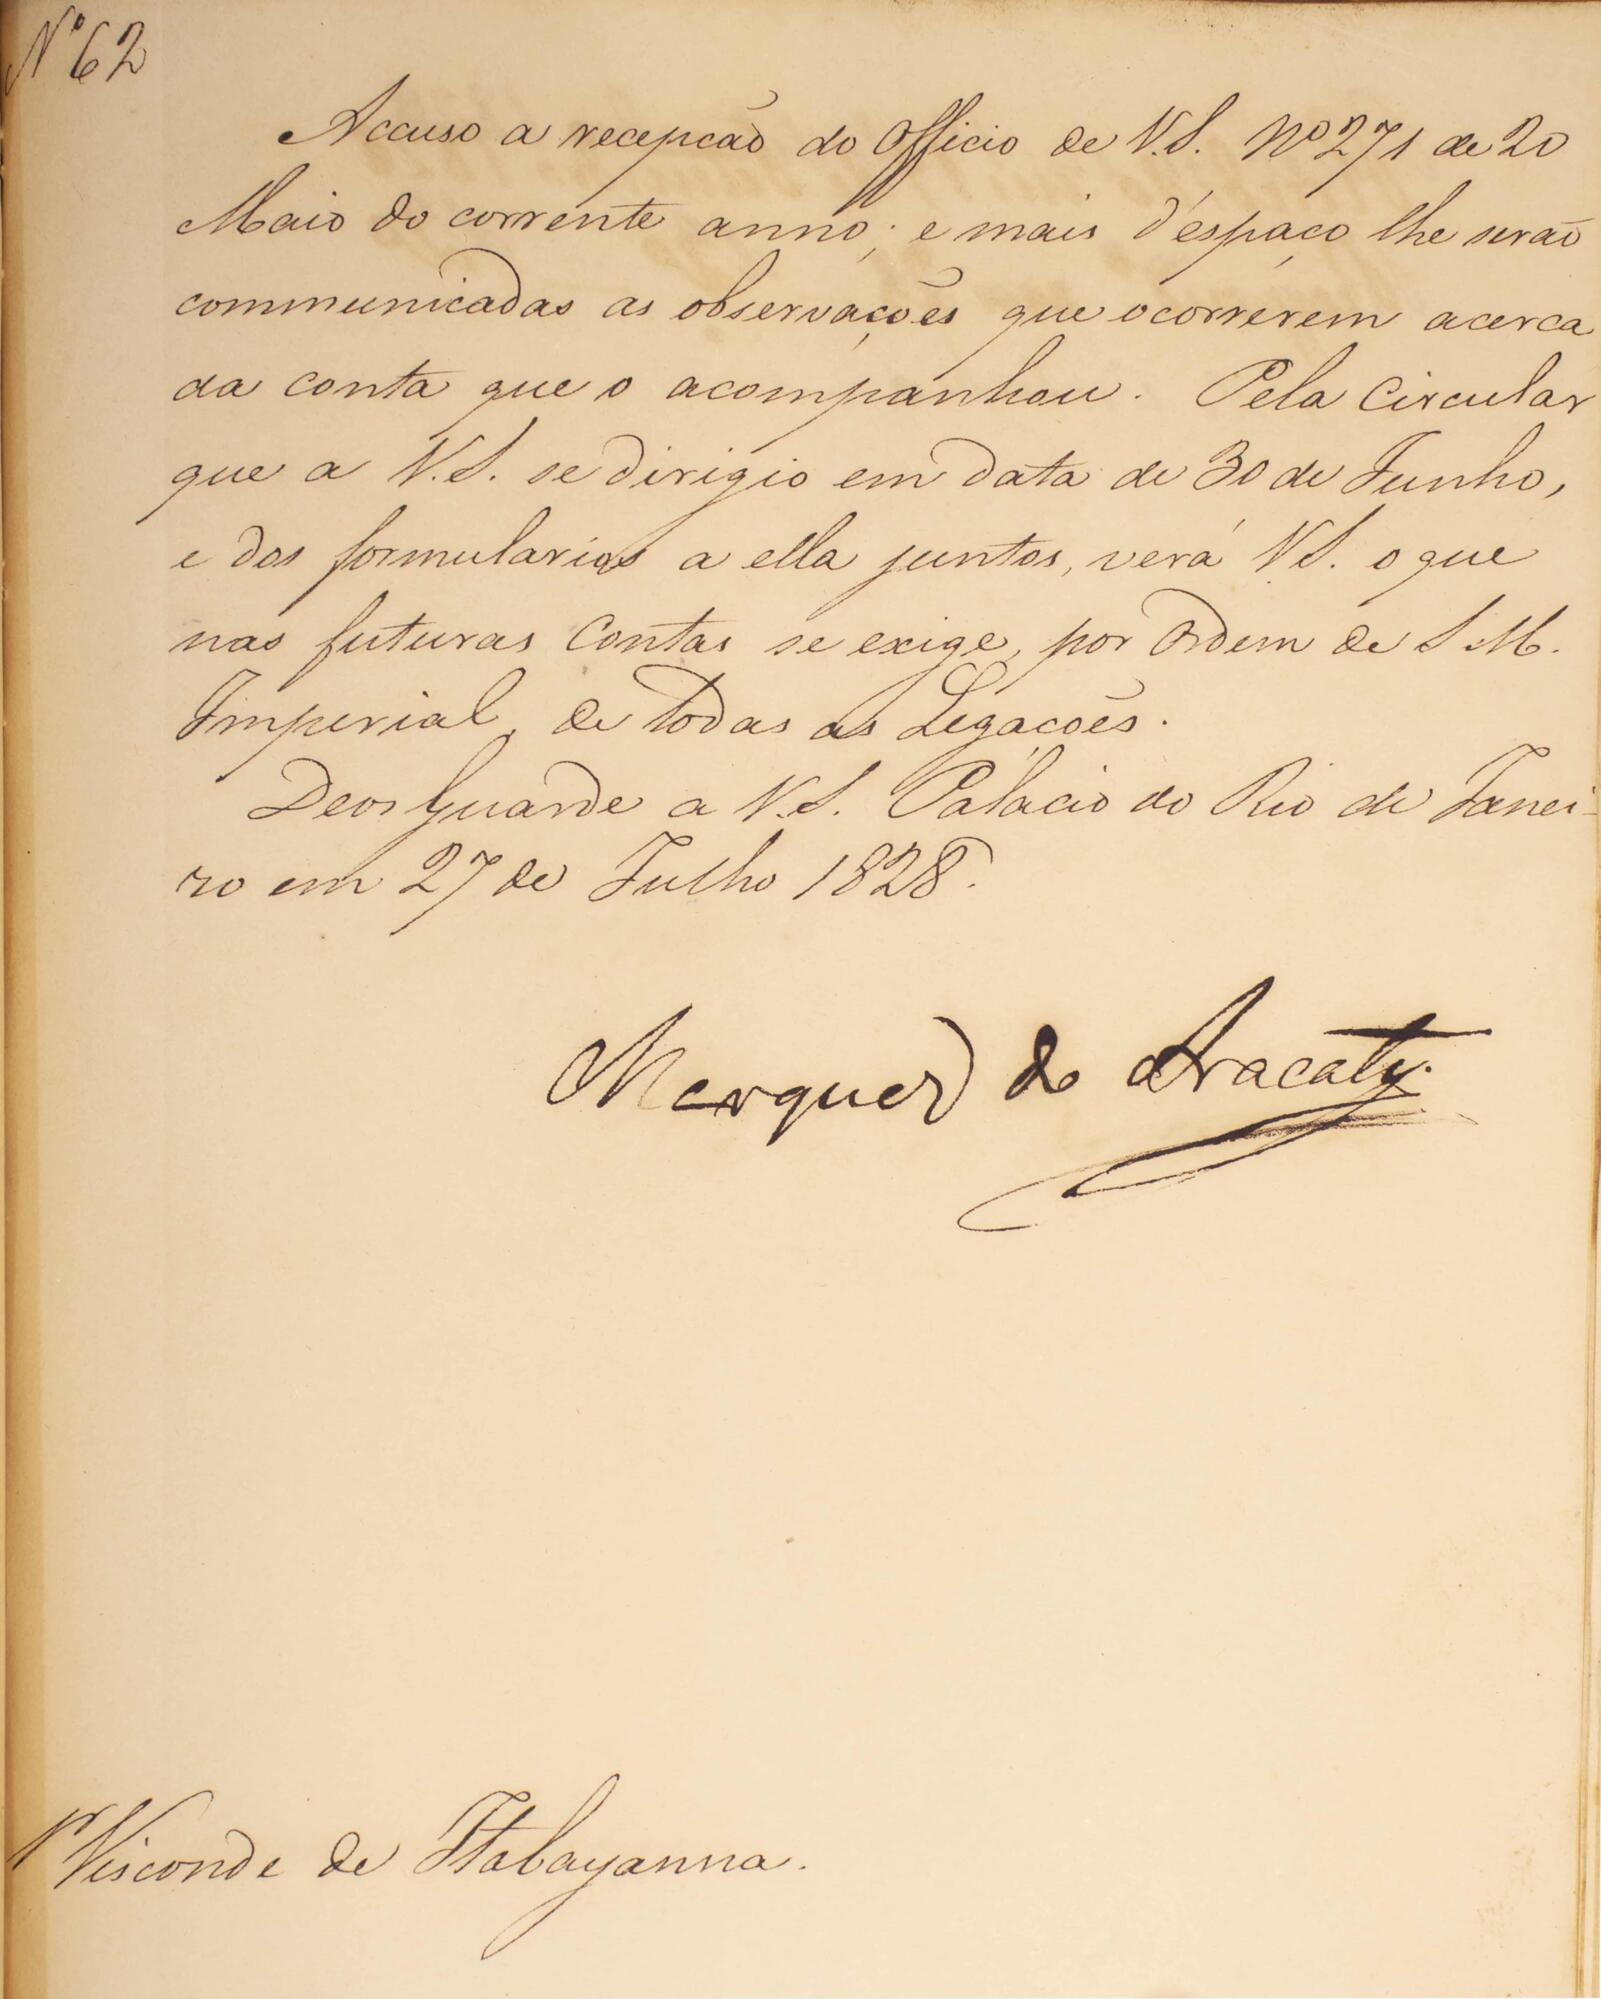 Nº 62
Accuso a recepção do Officio de V.S. Nº 271 de 20
Maio do corrente anno; e mais d'espaço lhe serão
communicadas as observações que ocorrerem acerca
da conta que o acompanhou. Pela Circular
que a V.S. se dirigio em data de 30 de Junho,
e dos formularios a ella juntos, verá V.S. o que
nas futuras Contas se exige, por Ordem de S.M.
Imperial, de todas as Legações.
Deos Guarde a V.S. Palacio do Rio de Janei-
ro em 27 de Julho 1828.
Marquez de Aracaty.
Sr Visconde de Itabayanna.